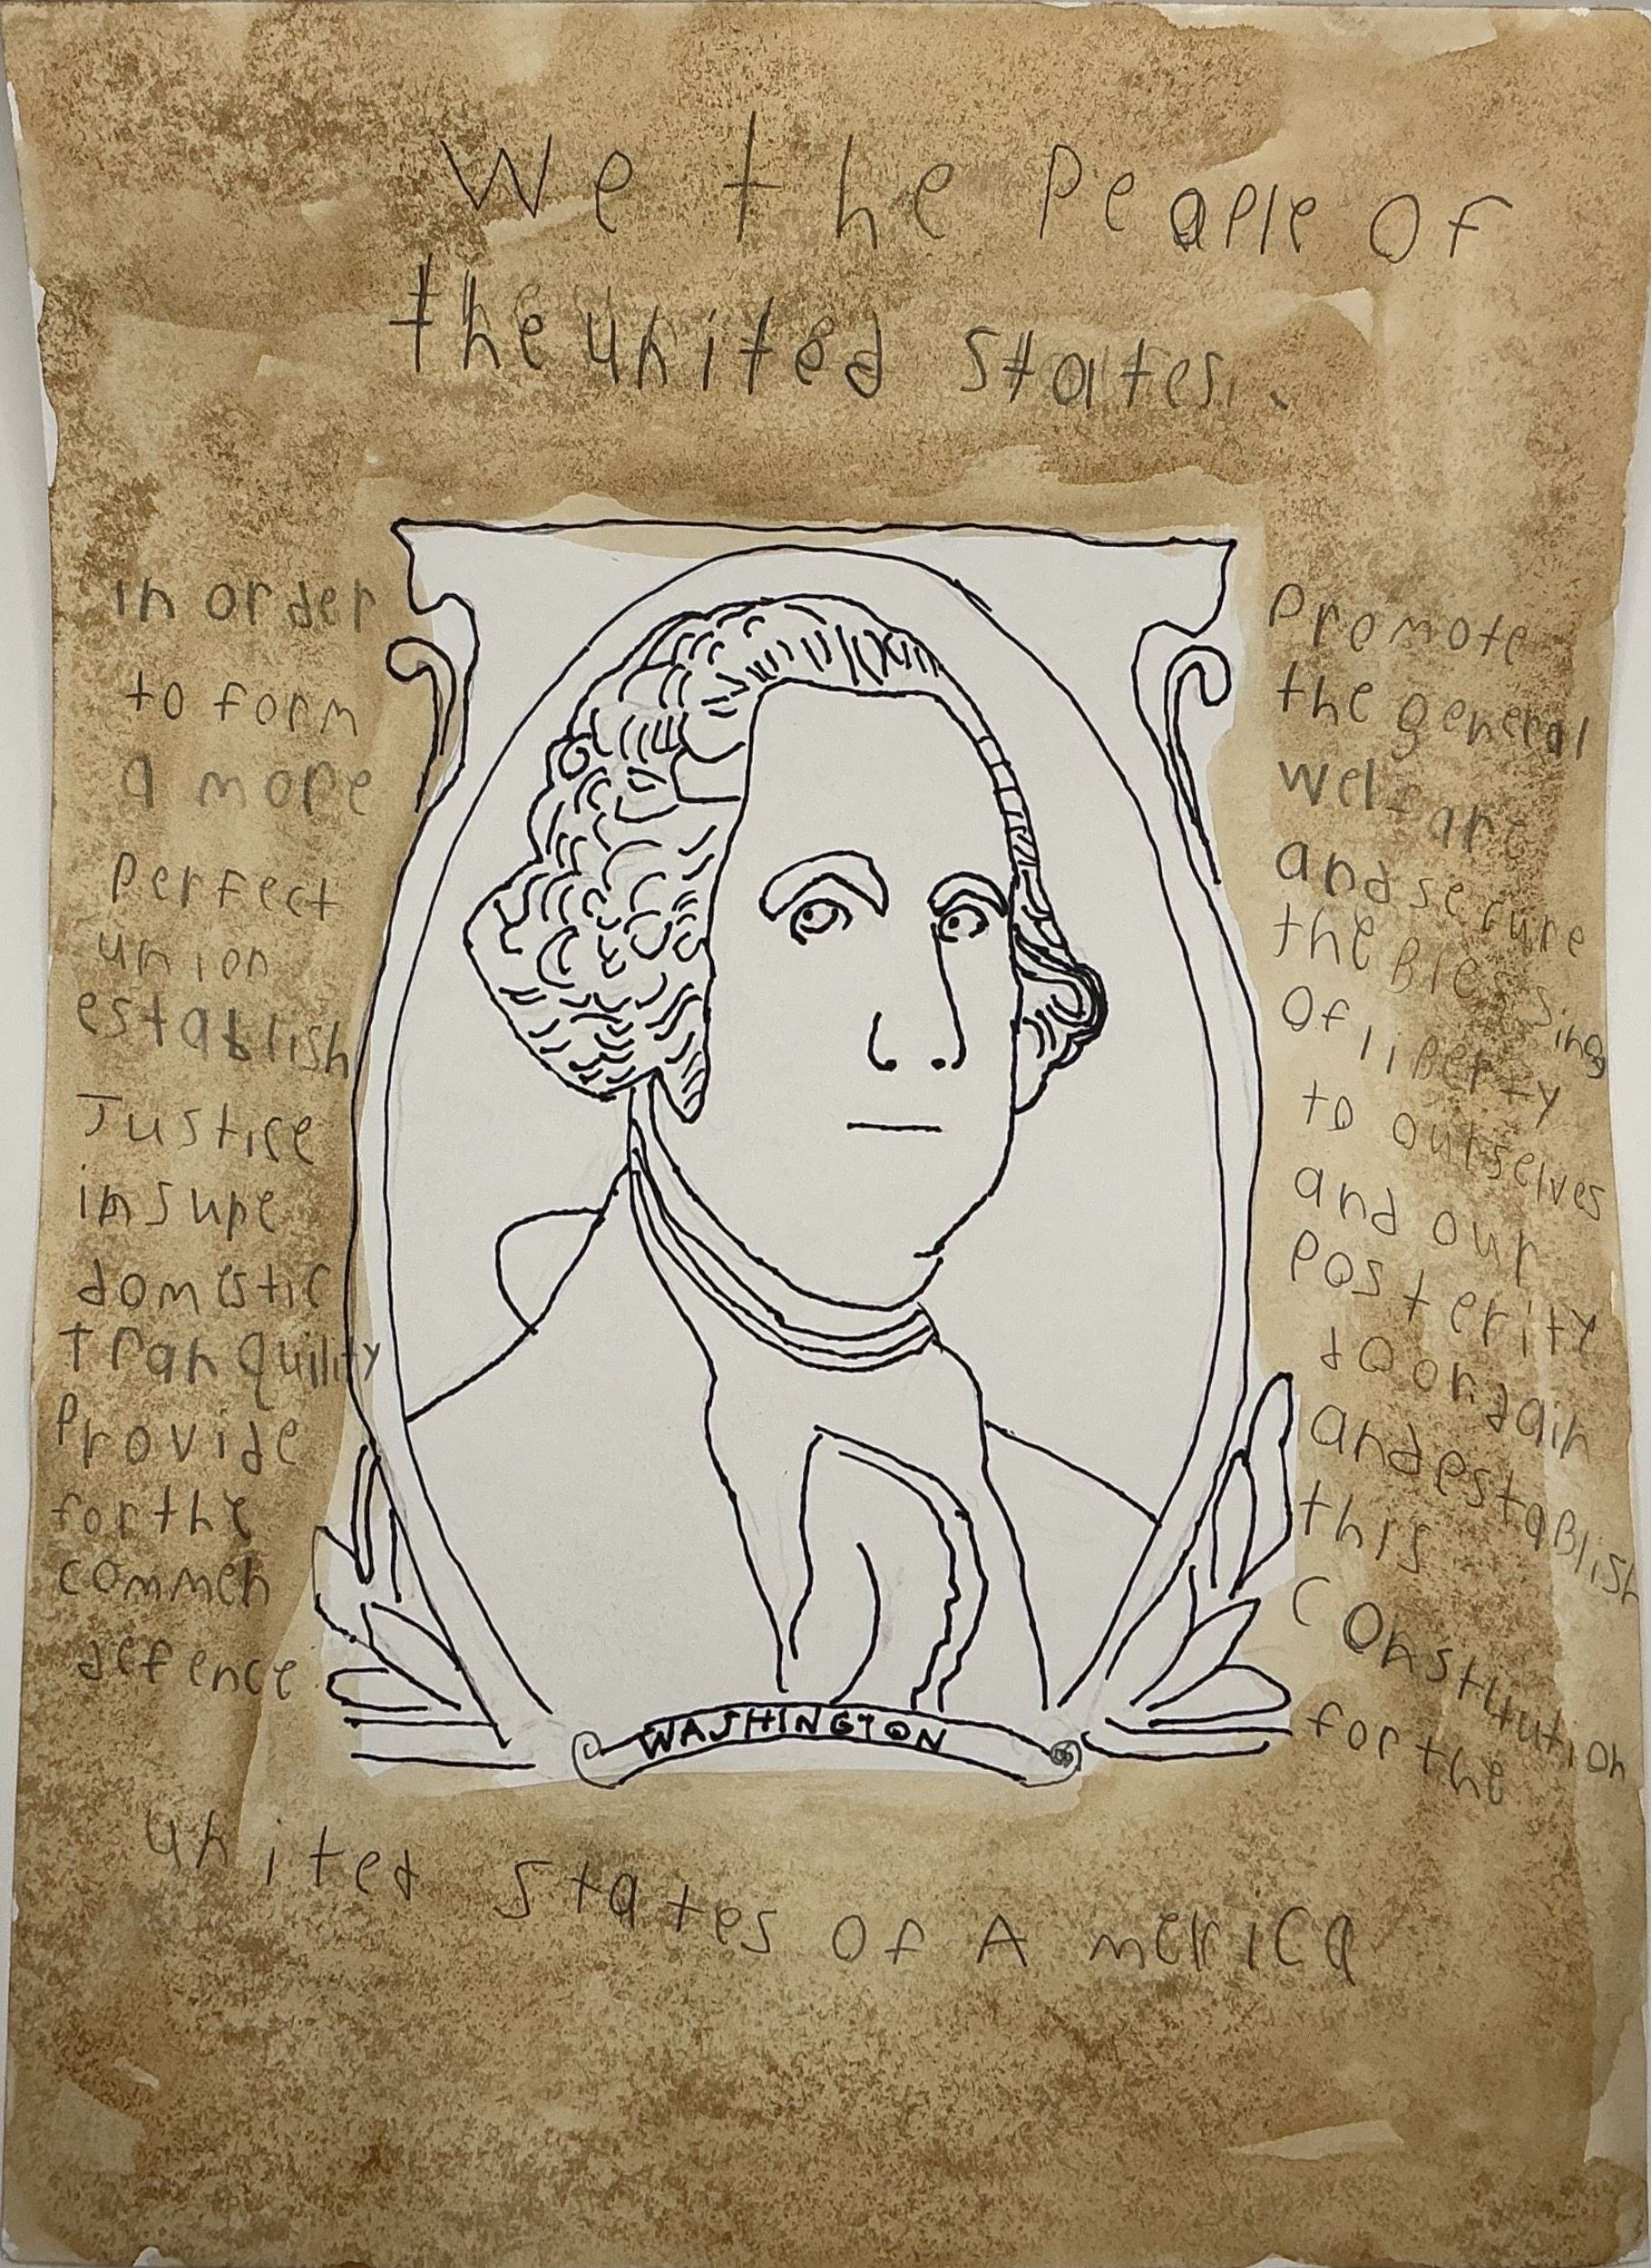 We the People of
the united states.
in order
to form
a more
perfect
union
establish
Justice
insure
domestic
tranquility
Provide
for the
commen
defence
Promote
the general
welfare
and secure
the Blessing
of liBerty
to ourselves
and our
Posterity
do ordain
and establish
this
constitution
for the
WASHINGTON
united states of America